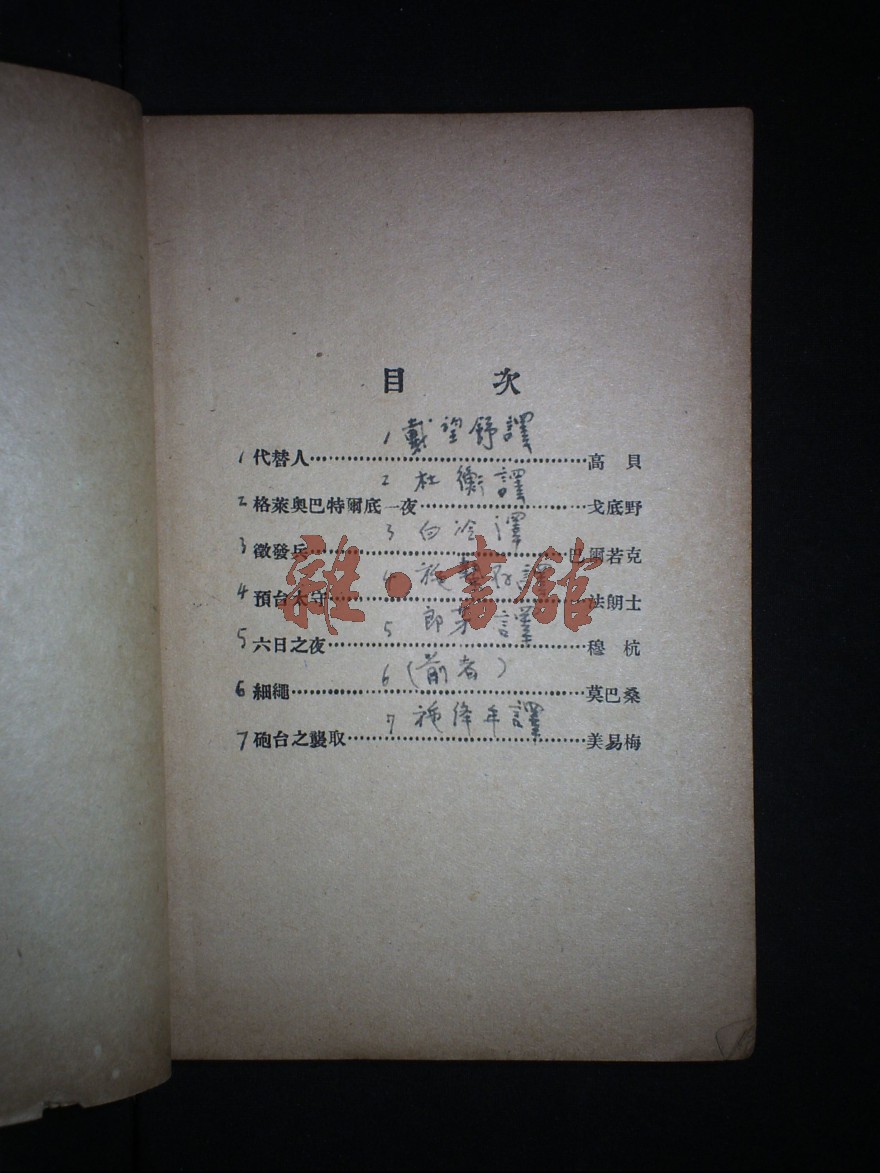 目 次
1 戴望舒譯
1 代替人……高 貝
2 杜衡譯
2 格萊奧巴特爾底一夜……戈底野
3 白冷譯
3 徵發兵……巴爾若克
雜·書館
4 施蟄存譯
4 預台太守……法朗士
5 郎芳譯
5 六日之夜……穆 杭
6 (前者)
6 細繩……莫巴桑
7 施絳年譯
7 砲台之襲取……美易梅